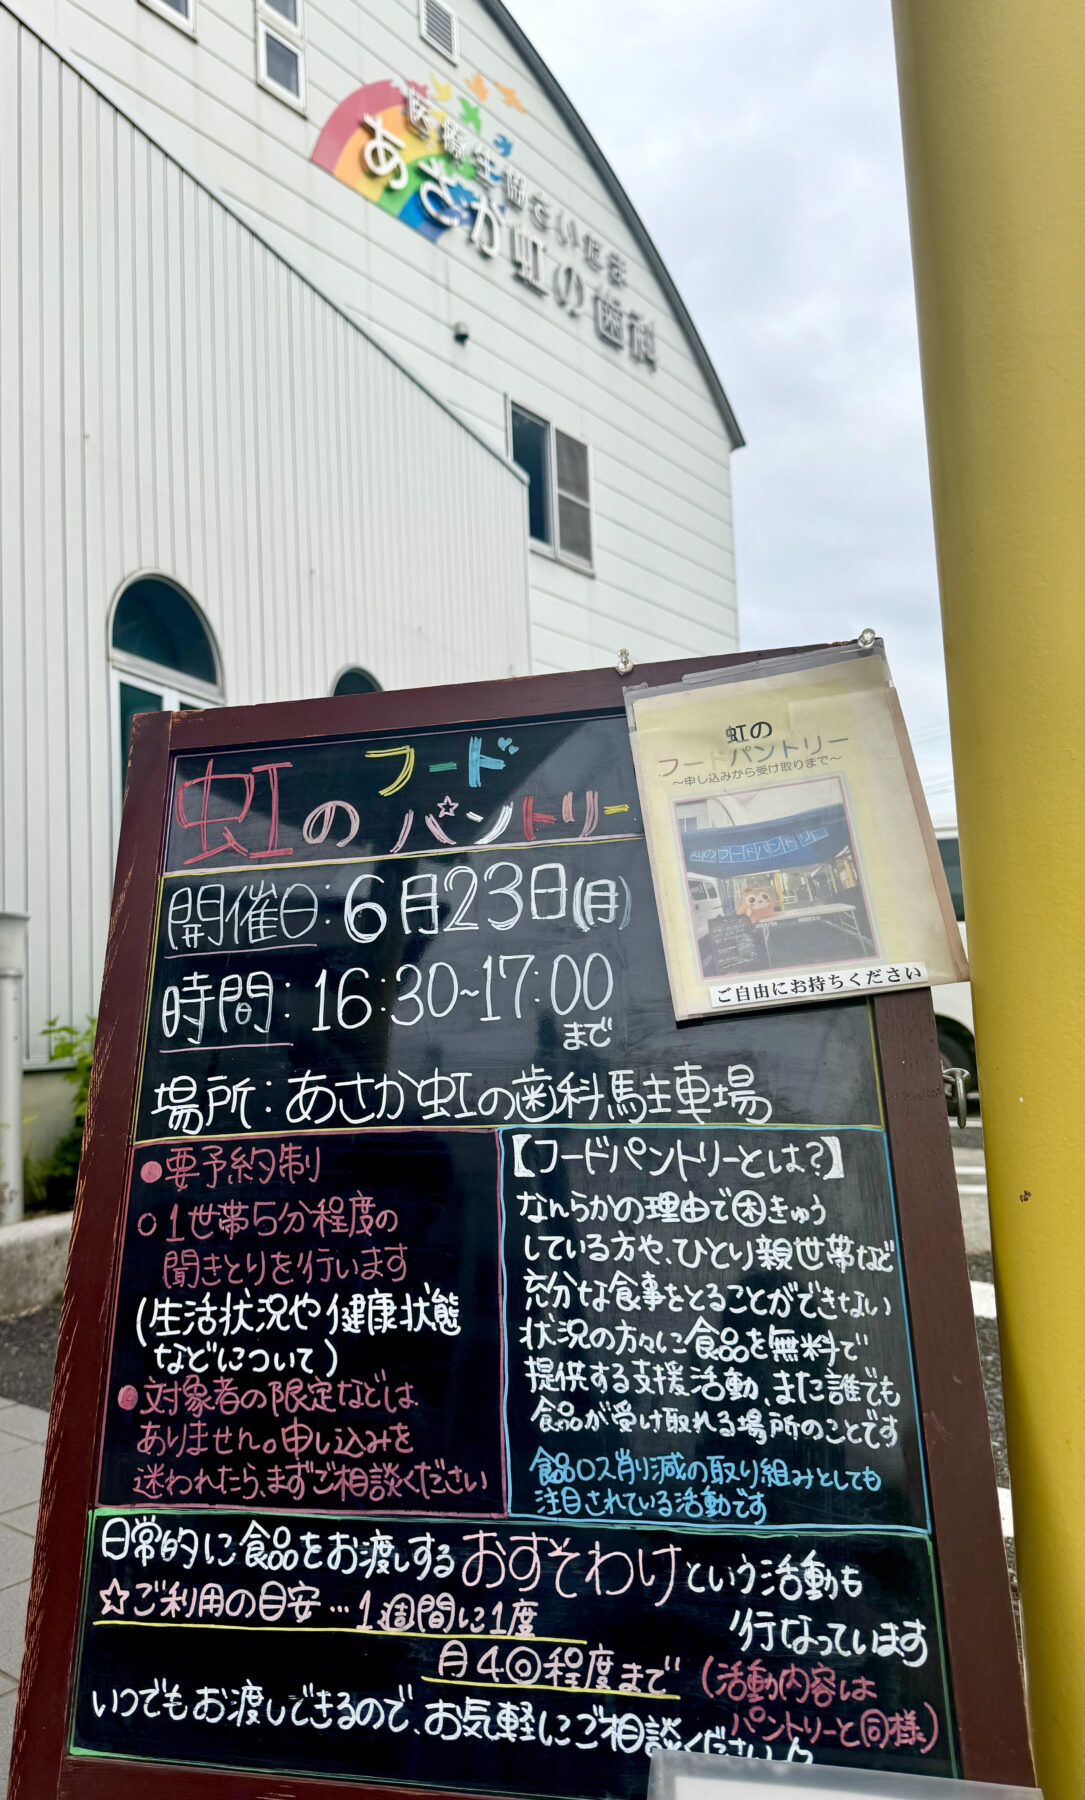 医療生協さいたま
あさか虹の歯科
虹の
フードパントリー
～申し込みから受け取りまで～
虹のフードパントリー
ご自由にお持ちください
虹の フード
パントリー
開催日:6月23日(月)
時間:16:30~17:00
まで
場所:あさか虹の歯科駐車場
●要予約制
○1世帯5分程度の
聞きとりを行います
(生活状況や健康状態
などについて)
●対象者の限定などは
ありません。申し込みを
迷われたら、まずご相談ください
【フードパントリーとは?】
なんらかの理由で困きゅう
している方や、ひとり親世帯など
充分な食事をとることができない
状況の方々に食品を無料で
提供する支援活動、また誰でも
食品が受け取れる場所のことです
食品ロス削減の取り組みとしても
注目されている活動です
日常的に食品をお渡しするおすそわけという活動も
行なっています
☆ご利用の目安…1週間に1度
月4回程度まで
(活動内容は
パントリーと同様)
いつでもお渡しできるので、お気軽にご相談ください